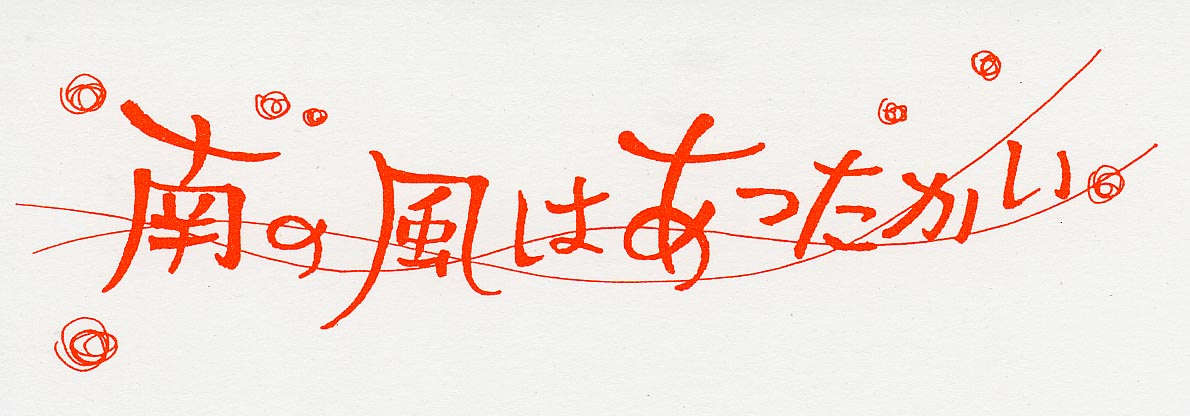 南の風はあったかい